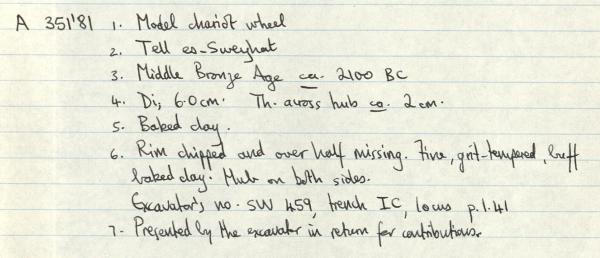 A 351'81 1. Model chariot wheel
2. Tell es-Sweyhat
3. Middle Bronze Age ca. 2100 BC
4. Di; 6.0cm. Th. across hub ca. 2cm.
5. Baked clay.
6. Rim chipped and over half missing. Fine, grit-tempered, buff
baked clay. Hub on both sides.
Excavator's no. SW 459, trench IC, locus p.1.41
7. Presented by the excavator in return for contributions.